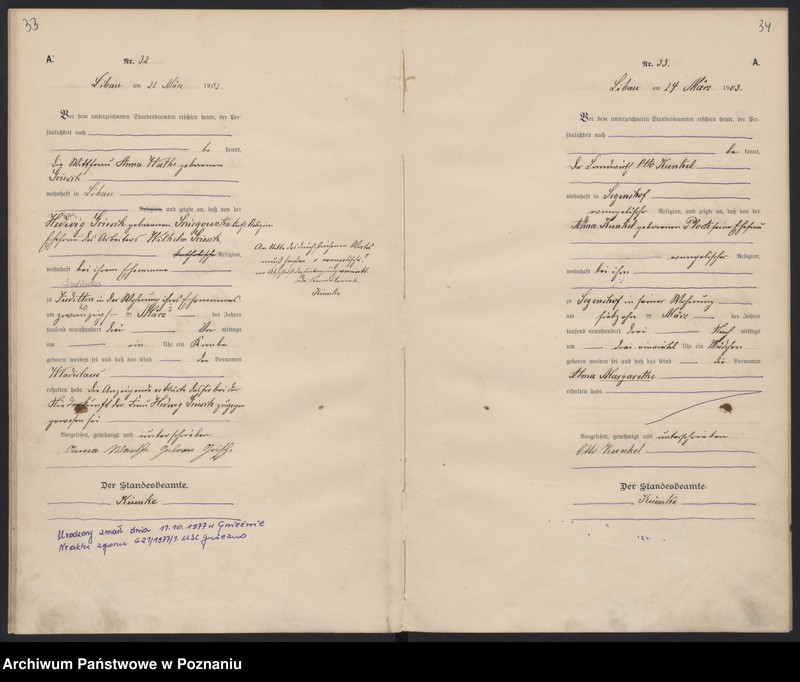 33
A.
Nr. 32
Libau am 22 März 1903
Vor dem unterzeichneten Standesbeamten erschien heute, der Per-
sönlichkeit nach
be kannt,
die Wittfrau Anna geborenen
wohnhaft in Libau
Religion, und zeigte an, daß von der
Hedwig geborenen kath. Religion
Ehefrau des Arbeiters Wilhelm
katholische Religion,
wohnhaft bei ihrem Ehemanne
zu in der Wohnung ihres Ehemannes
am zwanzigsten März des Jahres
tausend neunhundert drei Vor mittags
um ein Uhr ein Knabe
geboren worden sei und daß das Kind den Vornamen
Wladislaus
erhalten habe. Die Anzeigende erklärte, daß sie bei der
Niederkunft der Frau Hedwig zugegen
gewesen sei
Vorgelesen, genehmigt und unterschrieben
Anna
Der Standesbeamte.
Künnke
Urodzony zmarł dnia 17.10.1977 w Gnieźnie
Nr aktu zgonu 621/1977/1 USC Gniezno
An Stelle des durchstrichenen Wortes
muß heißen "evangelische"
Der Standesbeamte.
Künnke
34
Nr. 33.
A.
Libau am 24 März 1903.
Vor dem unterzeichneten Standesbeamten erschien heute, der Per-
sönlichkeit nach
be kannt,
der Landwirth Otto Kunkel
wohnhaft in Segenshof
evangelische Religion, und zeigte an, daß von der
Anna Kunkel geborenen seiner Ehefrau
evangelischer Religion,
wohnhaft bei ihm
zu Segenshof in seiner Wohnung
am siebzehn ten März des Jahres
tausend neunhundert drei Nach mittags
um drei einviertel Uhr ein Mädchen
geboren worden sei und daß das Kind die Vornamen
Alma Margarethe
erhalten habe.
Vorgelesen, genehmigt und unterschrieben
Otto Kunkel
Der Standesbeamte.
Künnke
Archiwum Państwowe w Poznaniu